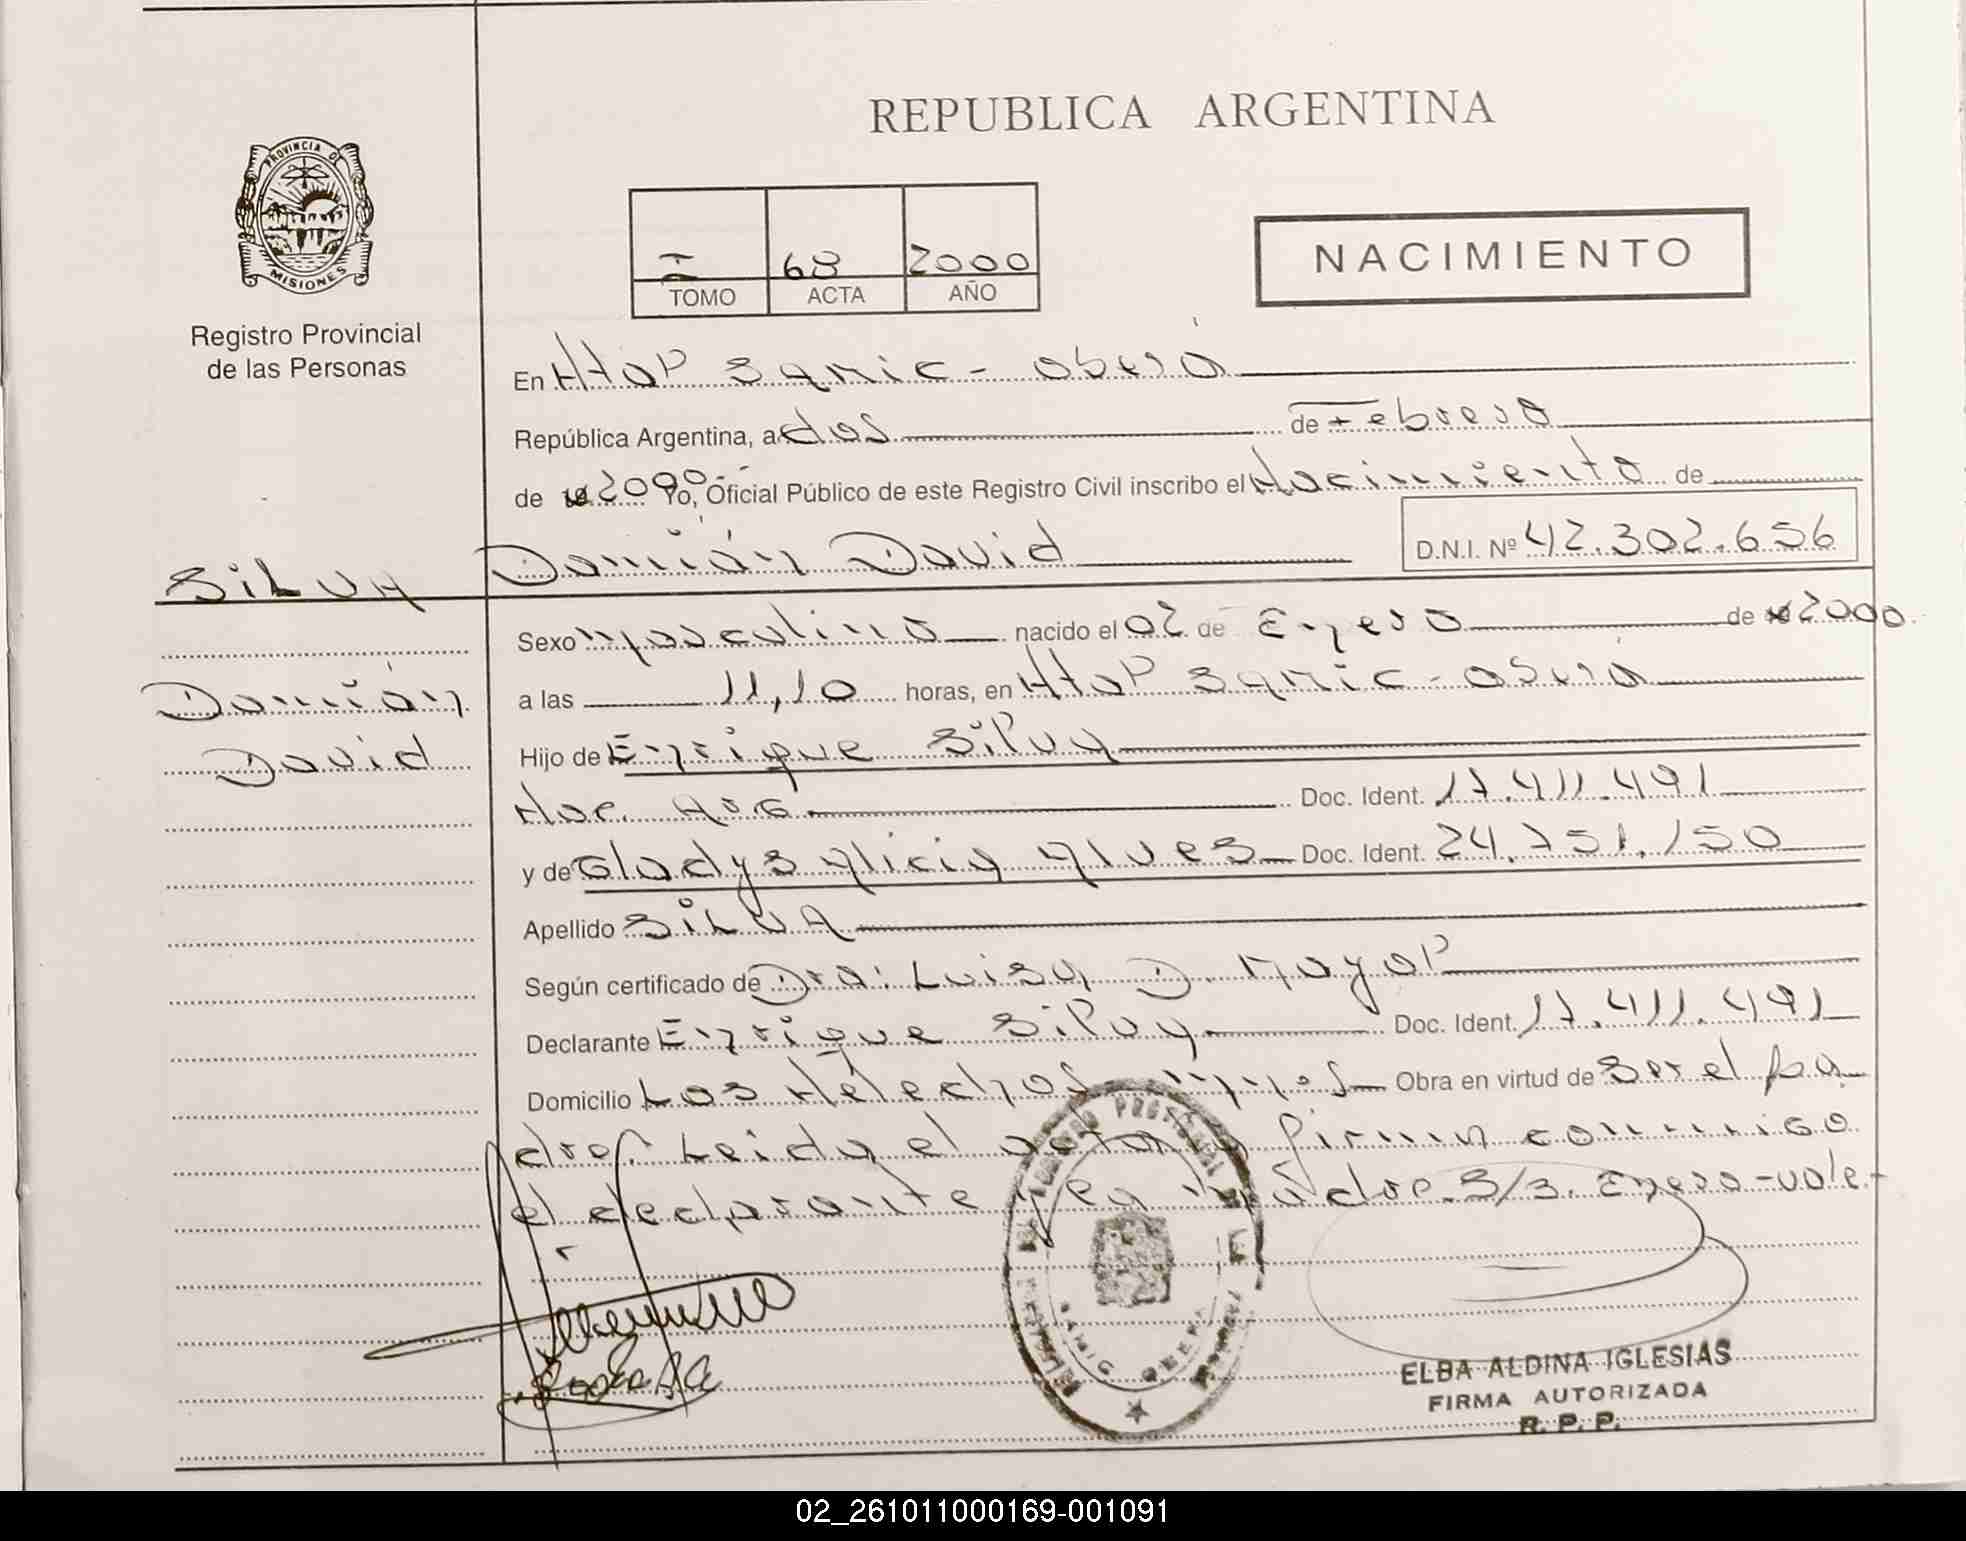 REPUBLICA ARGENTINA
PROVINCIA DE
MISIONES
Registro Provincial
de las Personas
I 68 2000
TOMO ACTA AÑO
NACIMIENTO
En Htal Samic - oberá
República Argentina, a dos de Febrero
de 2000 Yo, Oficial Público de este Registro Civil inscribo el Nacimiento de
SILVA Damián David D.N.I. Nº 42.302.656
Sexo masculino nacido el 02 de Enero de 2000
Damián
David
a las 11,10 horas, en Htal Samic - oberá
Hijo de Enrique Silva
Nac. Arg Doc. Ident. 17.411.491
y de Gladys Alicia Alves Doc. Ident. 24.751.150
Apellido SILVA
Según certificado de Dra: Luisa D. Mayol
Declarante Enrique Silva Doc. Ident. 17.411.491
Domicilio Los Helechos Mnes Obra en virtud de Ser el pa
dre. Leida el acta firman conmigo
el declarante y la madre. S/3. Enero - vale -
SAMIC OBERA
ELBA ALDINA IGLESIAS
FIRMA AUTORIZADA
R. P. P.
02_261011000169-001091